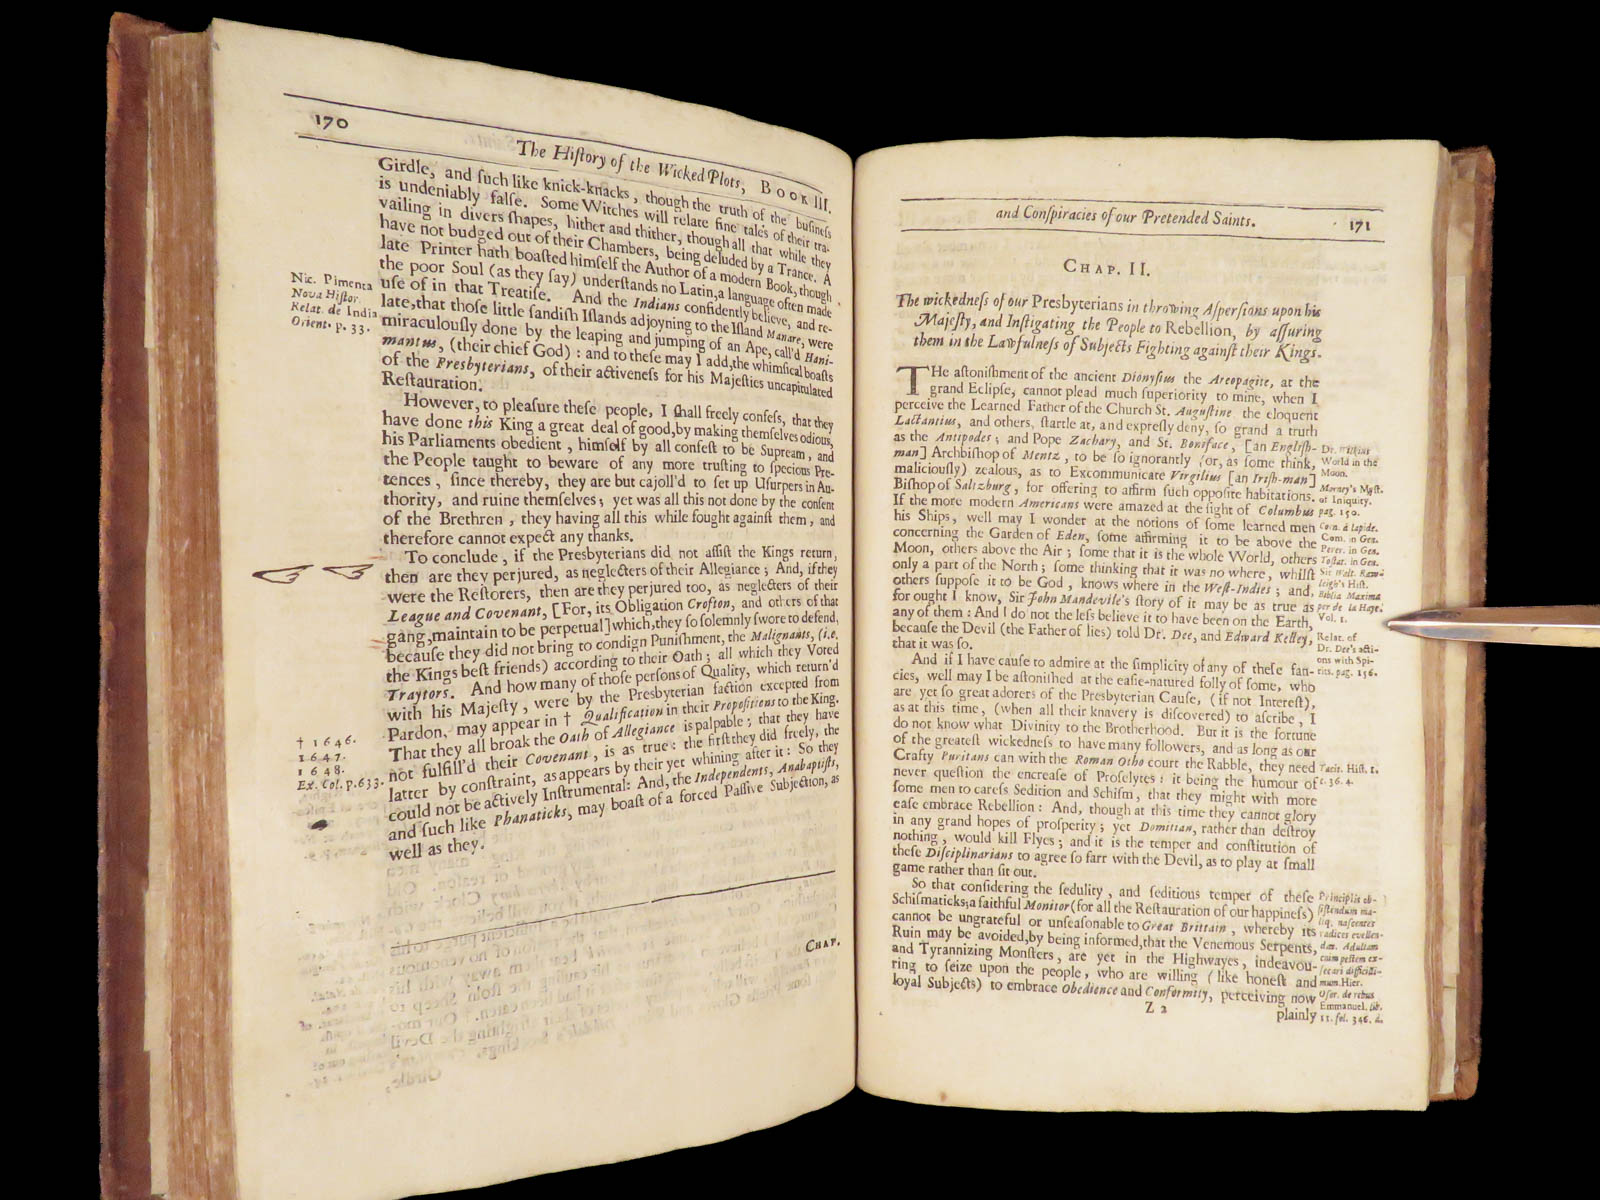 170
The Hiſtory of the Wicked Plots, BOOK III.
Girdle, and ſuch like knick-knacks, though the truth of the buſineſs
is undeniably falſe. Some Witches will relate fine tales of their tra-
vailing in divers ſhapes, hither and thither, though all that while they
have not budged out of their Chambers, being deluded by a Trance. A
late Printer hath boaſted himſelf the Author of a modern Book, though
the poor Soul (as they ſay) underſtands no Latin, a language often made
uſe of in that Treatiſe. And the Indians confidently believe, and re-
late, that thoſe little ſandiſh Iſlands adjoyning to the Iſland Manare, were
miraculouſly done by the leaping and jumping of an Ape, call'd Hani-
mantus, (their chief God) : and to theſe may I add, the whimſical boaſts
of the Presbyterians, of their activeneſs for his Majeſties uncapitulated
Reſtauration.
Nic. Pimenta
Nova Hiſtor.
Relat. de India
Orient. p. 33.
However, to pleaſure theſe people, I ſhall freely confeſs, that they
have done this King a great deal of good, by making themſelves odious,
his Parliaments obedient, himſelf by all confeſt to be Supream, and
the People taught to beware of any more truſting to ſpecious Pre-
tences, ſince thereby, they are but cajoll'd to ſet up Uſurpers in Au-
thority, and ruine themſelves; yet was all this not done by the conſent
of the Brethren, they having all this while fought againſt them, and
therefore cannot expect any thanks.
To conclude, if the Presbyterians did not aſſiſt the Kings return,
then are they perjured, as neglecters of their Allegiance; And, if they
were the Reſtorers, then are they perjured too, as neglecters of their
League and Covenant, [For, its Obligation Crofton, and others of that
gang, maintain to be perpetual] which, they ſo ſolemnly ſwore to defend,
becauſe they did not bring to condign Puniſhment, the Malignants, (i.e.
the Kings beſt friends) according to their Oath; all which they Voted
Traytors. And how many of thoſe perſons of Quality, which return'd
with his Majeſty, were by the Presbyterian faction excepted from
Pardon, may appear in † Qualification in their Propoſitions to the King.
That they all break the Oath of Allegiance is palpable; that they have
not fulfill'd their Covenant, is as true: the firſt they did freely, the
latter by conſtraint, as appears by their yet whining after it: So they
could not be actively Inſtrumental: And, the Independents, Anabaptiſts,
and ſuch like Phanaticks, may boaſt of a forced Paſſive Subjection, as
well as they.
† 1646.
1647.
1648.
Ex. Col. p. 633.
CHAP.
and Conſpiracies of our Pretended Saints.
171
CHAP. II.
The wickedneſs of our Presbyterians in throwing Aſperſions upon his
Majeſty, and Inſtigating the People to Rebellion, by aſſuring
them in the Lawfulneſs of Subjects Fighting againſt their Kings.
THe aſtoniſhment of the ancient Dionyſius the Areopagite, at the
grand Eclipſe, cannot plead much ſuperiority to mine, when I
perceive the Learned Father of the Church St. Auguſtine the eloquent
Lactantius, and others, ſtartle at, and expreſly deny, ſo grand a truth
as the Antipodes; and Pope Zachary, and St. Boniface, [an Engliſh-
man] Archbiſhop of Mentz, to be ſo ignorantly (or, as ſome think,
maliciouſly) zealous, as to Excommunicate Virgilius [an Iriſh-man]
Biſhop of Saltzburg, for offering to affirm ſuch oppoſite habitations.
If the more modern Americans were amazed at the ſight of Columbus
his Ships, well may I wonder at the notions of ſome learned men
concerning the Garden of Eden, ſome affirming it to be above the
Moon, others above the Air; ſome that it is the whole World, others
only a part of the North; ſome thinking that it was no where, whilſt
others ſuppoſe it to be God, knows where in the Weſt-Indies; and,
for ought I know, Sir John Mandevile's ſtory of it may be as true as
any of them: And I do not the leſs believe it to have been on the Earth,
becauſe the Devil (the Father of lies) told Dr. Dee, and Edward Kelley,
that it was ſo.
Dr. Wilkins
World in the
Moon.
Morney's Myſt.
of Iniquity.
pag. 150.
Corn. à lapide.
Com. in Gen.
Perer. in Gen.
Toſtat. in Gen.
Sir Walt. Raw-
leigh's Hiſt.
Biblia Maxima
per de la Haye.
Vol. 1.
Relat. of
Dr. Dee's acti-
ons with Spi-
rits, pag. 156.
And if I have cauſe to admire at the ſimplicity of any of theſe fan-
cies, well may I be aſtoniſhed at the eaſie-natured folly of ſome, who
are yet ſo great adorers of the Presbyterian Cauſe, (if not Intereſt),
as at this time, (when all their knavery is diſcovered) to aſcribe, I
do not know what Divinity to the Brotherhood. But it is the fortune
of the greateſt wickedneſs to have many followers, and as long as our
Crafty Puritans can with the Roman Otho court the Rabble, they need
never queſtion the encreaſe of Proſelytes: it being the humour of
ſome men to careſs Sedition and Schiſm, that they might with more
eaſe embrace Rebellion: And, though at this time they cannot glory
in any grand hopes of proſperity; yet Domitian, rather than deſtroy
nothing, would kill Flyes; and it is the temper and conſtitution of
theſe Diſciplinarians to agree ſo farr with the Devil, as to play at ſmall
game rather than ſit out.
Tacit. Hiſt. 1.
c. 36. 4.
So that conſidering the ſedulity, and ſeditious temper of theſe
Schiſmaticks; a faithful Monitor (for all the Reſtauration of our happineſs)
cannot be ungrateful or unſeaſonable to Great Brittain, whereby its
Ruin may be avoided, by being informed, that the Venemous Serpents,
and Tyrannizing Monſters, are yet in the Highwayes, indeavou-
ring to ſeize upon the people, who are willing (like honeſt and
loyal Subjects) to embrace Obedience and Conformity, perceiving now
Principiis ob-
ſiſtendum ma-
liq. naſcentes
radices evellen-
dae. Adultam
enim peſtem ex-
ſecari difficilli-
mum. Hier.
Oſor. de rebus
Emmanuel. lib.
11. fol. 346. d.
Z 2
plainly